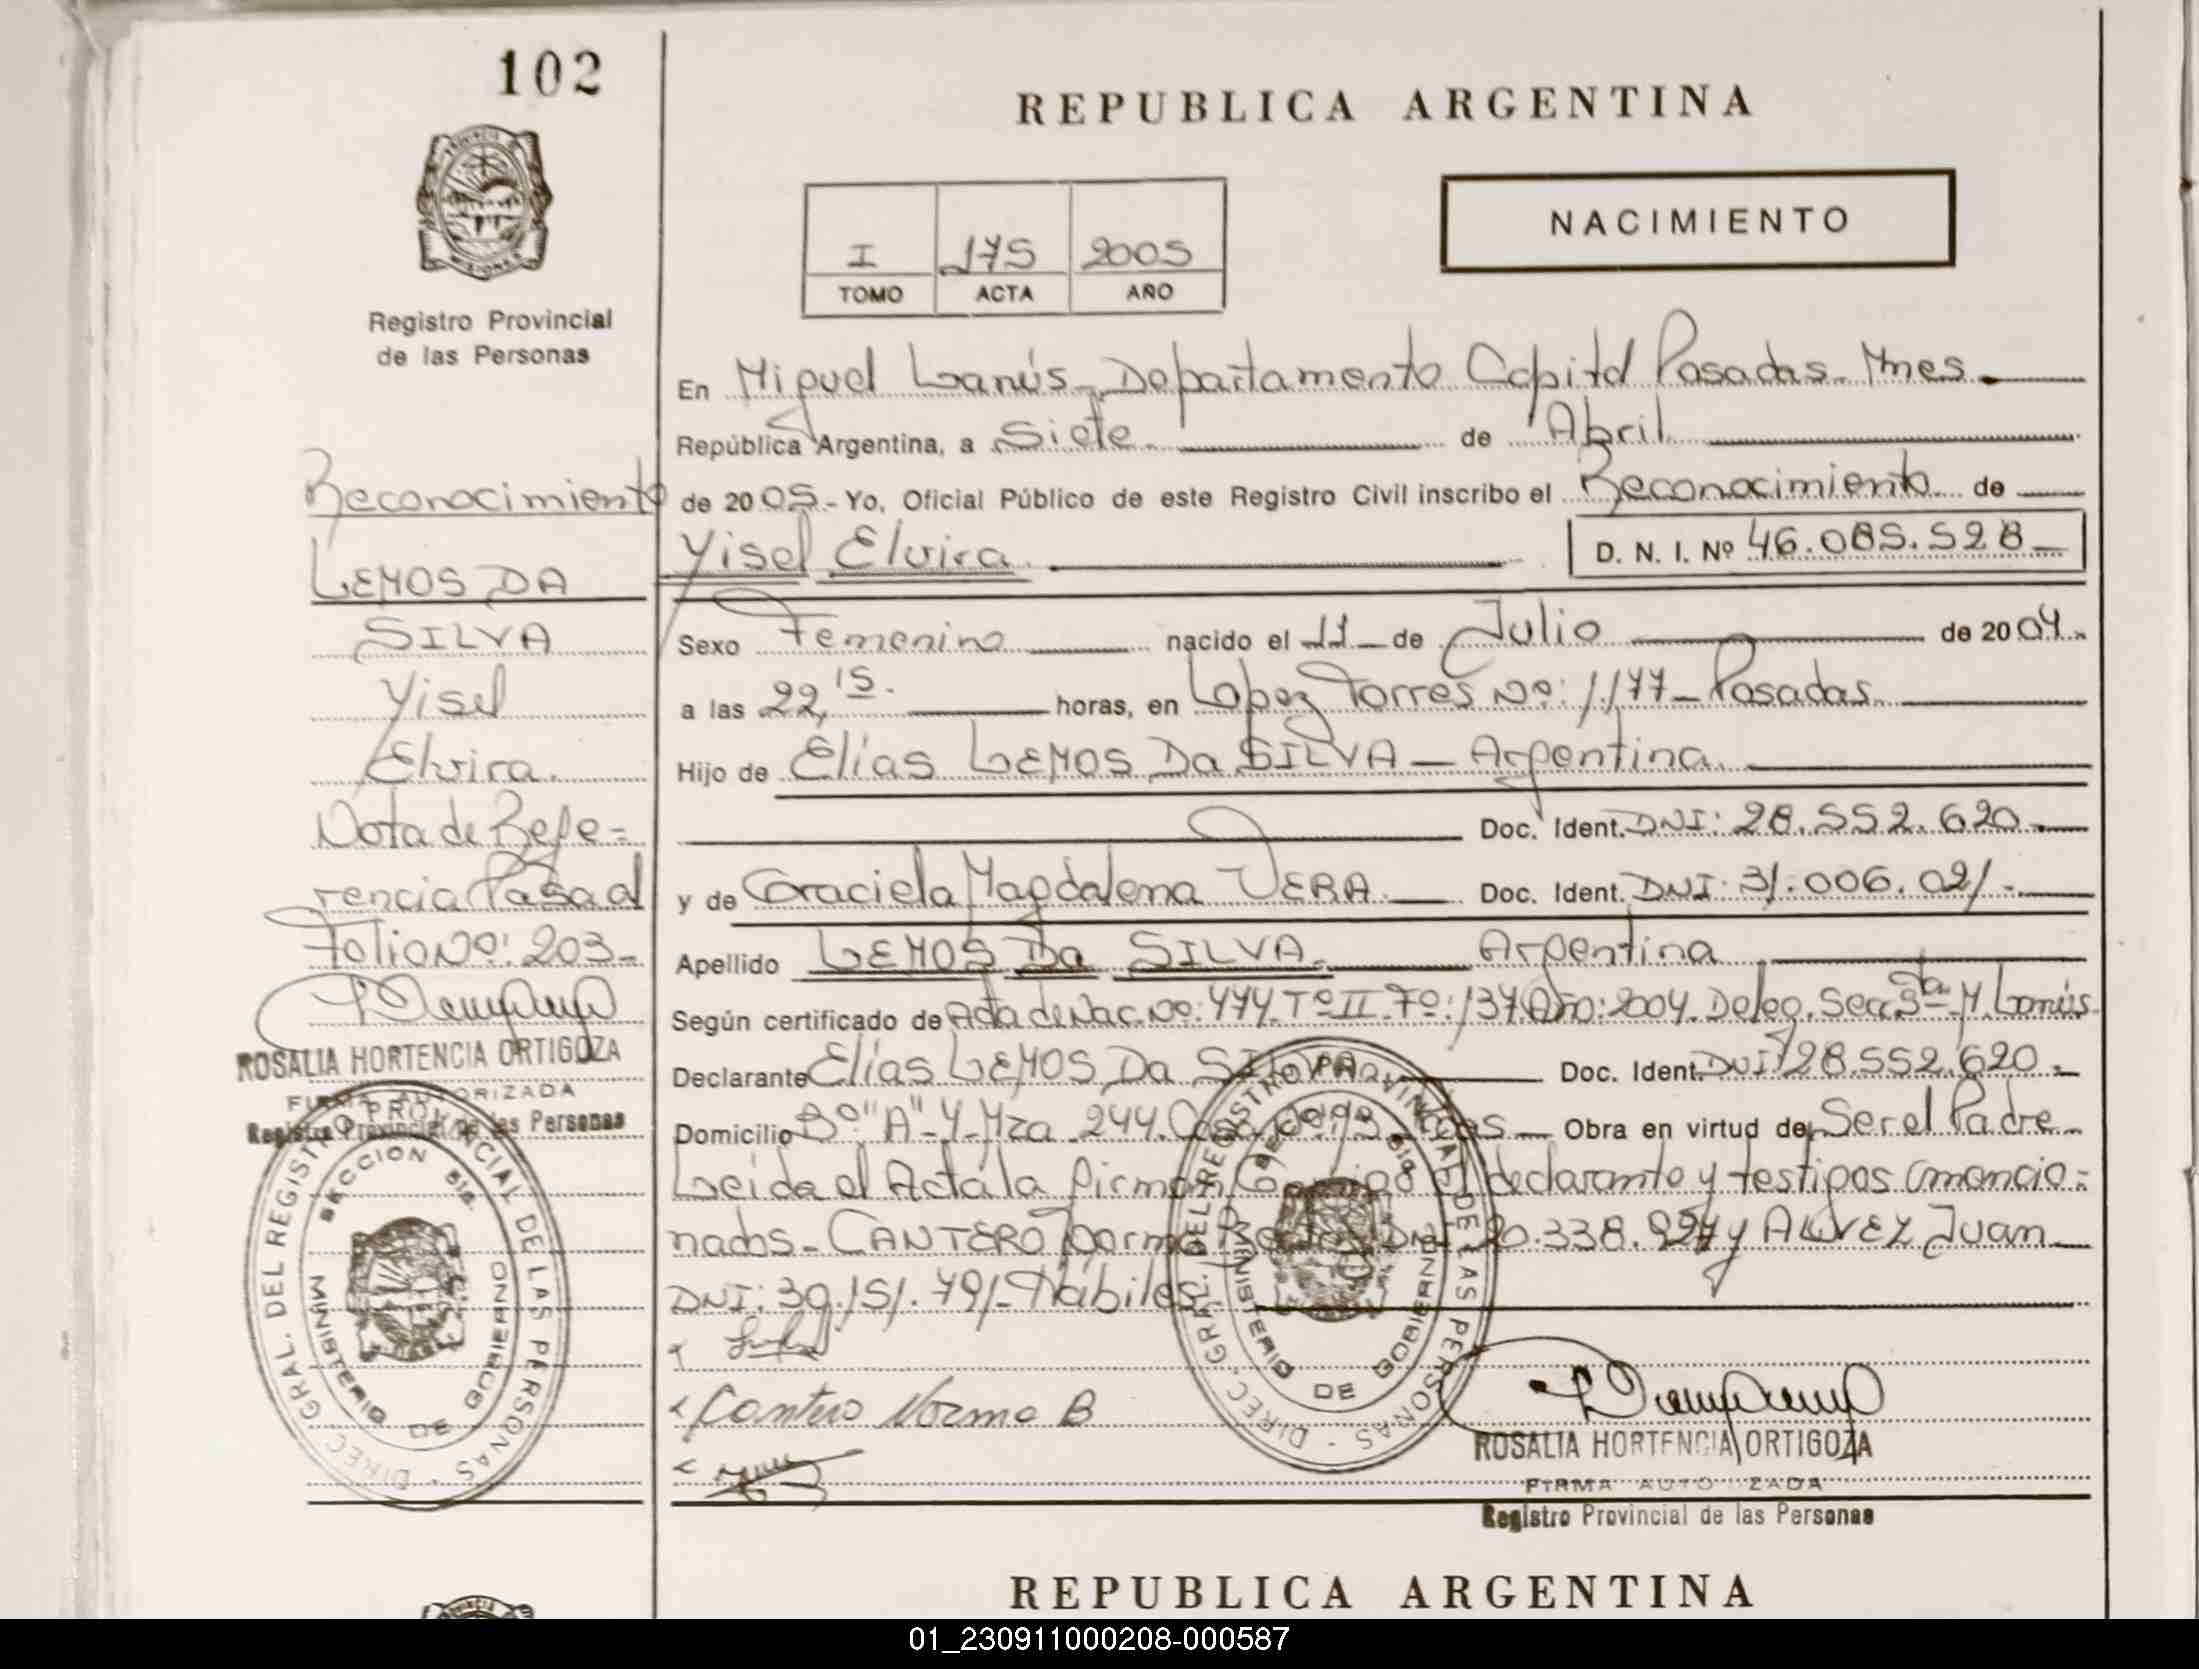 102
REPUBLICA ARGENTINA
PROVINCIA DE MISIONES
NACIMIENTO
I 175 2005
TOMO ACTA AÑO
Registro Provincial
de las Personas
En Miguel Lanús, Departamento Capital Posadas Mnes.
República Argentina, a Siete. de Abril
de 2005.- Yo, Oficial Público de este Registro Civil inscribo el Reconocimiento de
Yisel Elvira D. N. I. Nº 46.085.528
Sexo Femenino nacido el 11 de Julio de 2004.
a las 22,15. horas, en Lopez Torres Nº: 1.177 - Posadas.
Hijo de Elías LEMOS Da SILVA - Argentina.
Doc. Ident. DNI: 28.552.620.
y de Graciela Magdalena VERA. Doc. Ident. DNI: 31.006.021.
Apellido LEMOS Da SILVA. Argentina
Según certificado de Acta de Nac. Nº: 474. Tº II. Fº: 137. Año: 2004. Deleg. Secc. 5ta - M. Lanús
Declarante Elías LEMOS Da SILVA Doc. Ident. DNI 28.552.620.
Domicilio Bº "A"-4-Mza 244. Casa Obra en virtud de Ser el Padre.
Leida el Acta la firman Conmigo el declarante y testigos mencio=
nados- CANTERO Norma DNI 20.338. y ALVEZ Juan
DNI: 39.151.791- Hábiles.
Cantero Norma B
ROSALIA HORTENCIA ORTIGOZA
FIRMA AUTO ZADA
Registro Provincial de las Personas
DIREC. GRAL. DEL REGISTRO PROVINCIAL DE LAS PERSONAS
MINISTERIO DE GOBIERNO
Reconocimiento
LEMOS DA
SILVA
Yisel
Elvira.
Nota de Refe=
rencia Pasa al
Folio Nº: 203-
ROSALIA HORTENCIA ORTIGOZA
FIRMA AUTORIZADA
Registro Provincial de las Personas
DIREC. GRAL. DEL REGISTRO PROVINCIAL DE LAS PERSONAS
SECCION 5ta.
MINISTERIO DE GOBIERNO
REPUBLICA ARGENTINA
01_230911000208-000587